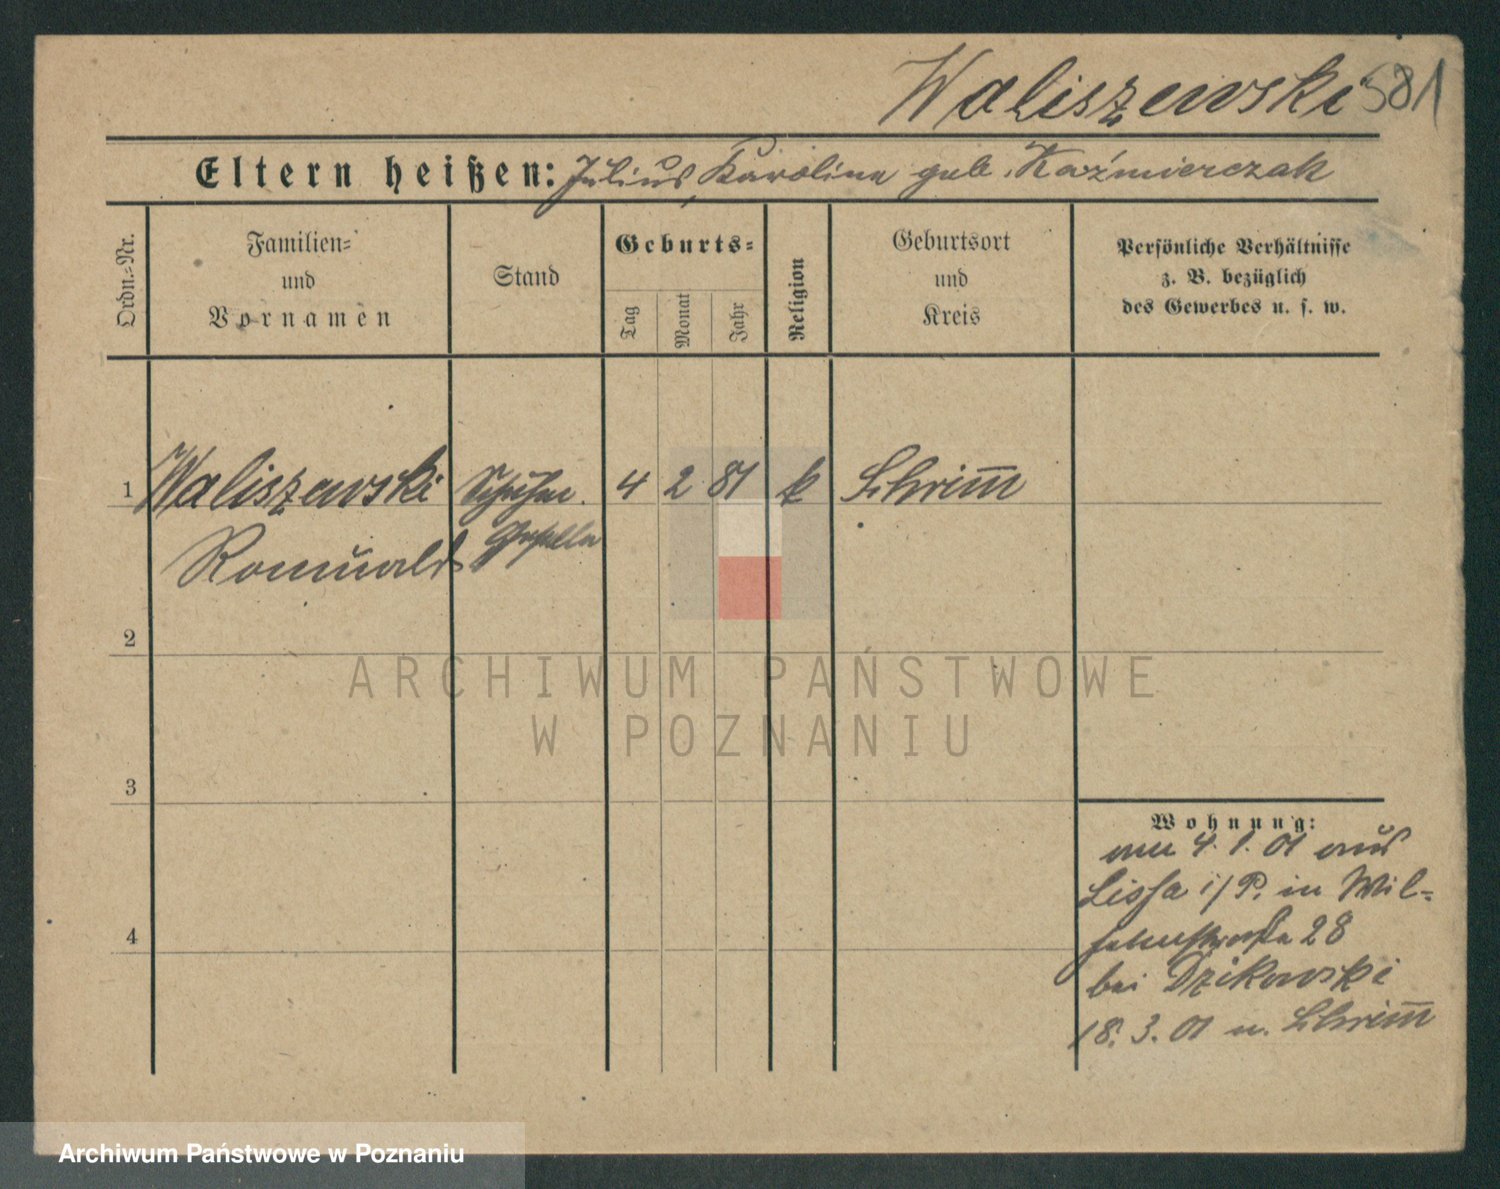 Waliszewski 581
Eltern heißen: Julius, Karoline geb. Kaźmierczak
Ordn.-Nr.
Familien-
und
Vornamen
Stand
Geburts-
Tag
Monat
Jahr
Religion
Geburtsort
und
Kreis
Persönliche Verhältnisse
z. B. bezüglich
des Gewerbes u. s. w.
1 Waliszewski Schuhm. 4 2 81 k Schrim̅
Romuald Geselle
2
3
4
Wohnung:
am 4. 1. 01 aus
Lissa i/P. in Wil-
helmstraße 28
bei Dzikowski
18. 3. 01 n. Schrim̅
ARCHIWUM PAŃSTWOWE
W POZNANIU
Archiwum Państwowe w Poznaniu